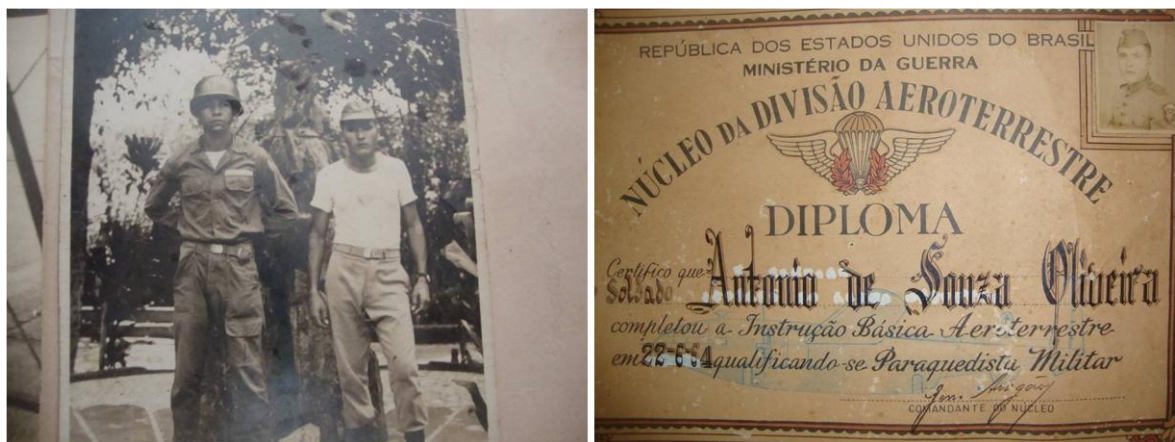 REPÚBLICA DOS ESTADOS UNIDOS DO BRASIL
MINISTÉRIO DA GUERRA
NÚCLEO DA DIVISÃO AEROTERRESTRE
DIPLOMA
Certifico que
Soldado Antonio de Souza Oliveira
completou a Instrução Básica Aeroterrestre
em 22-6-64 qualificando-se Paraquedista Militar
Gen.
COMANDANTE DO NÚCLEO